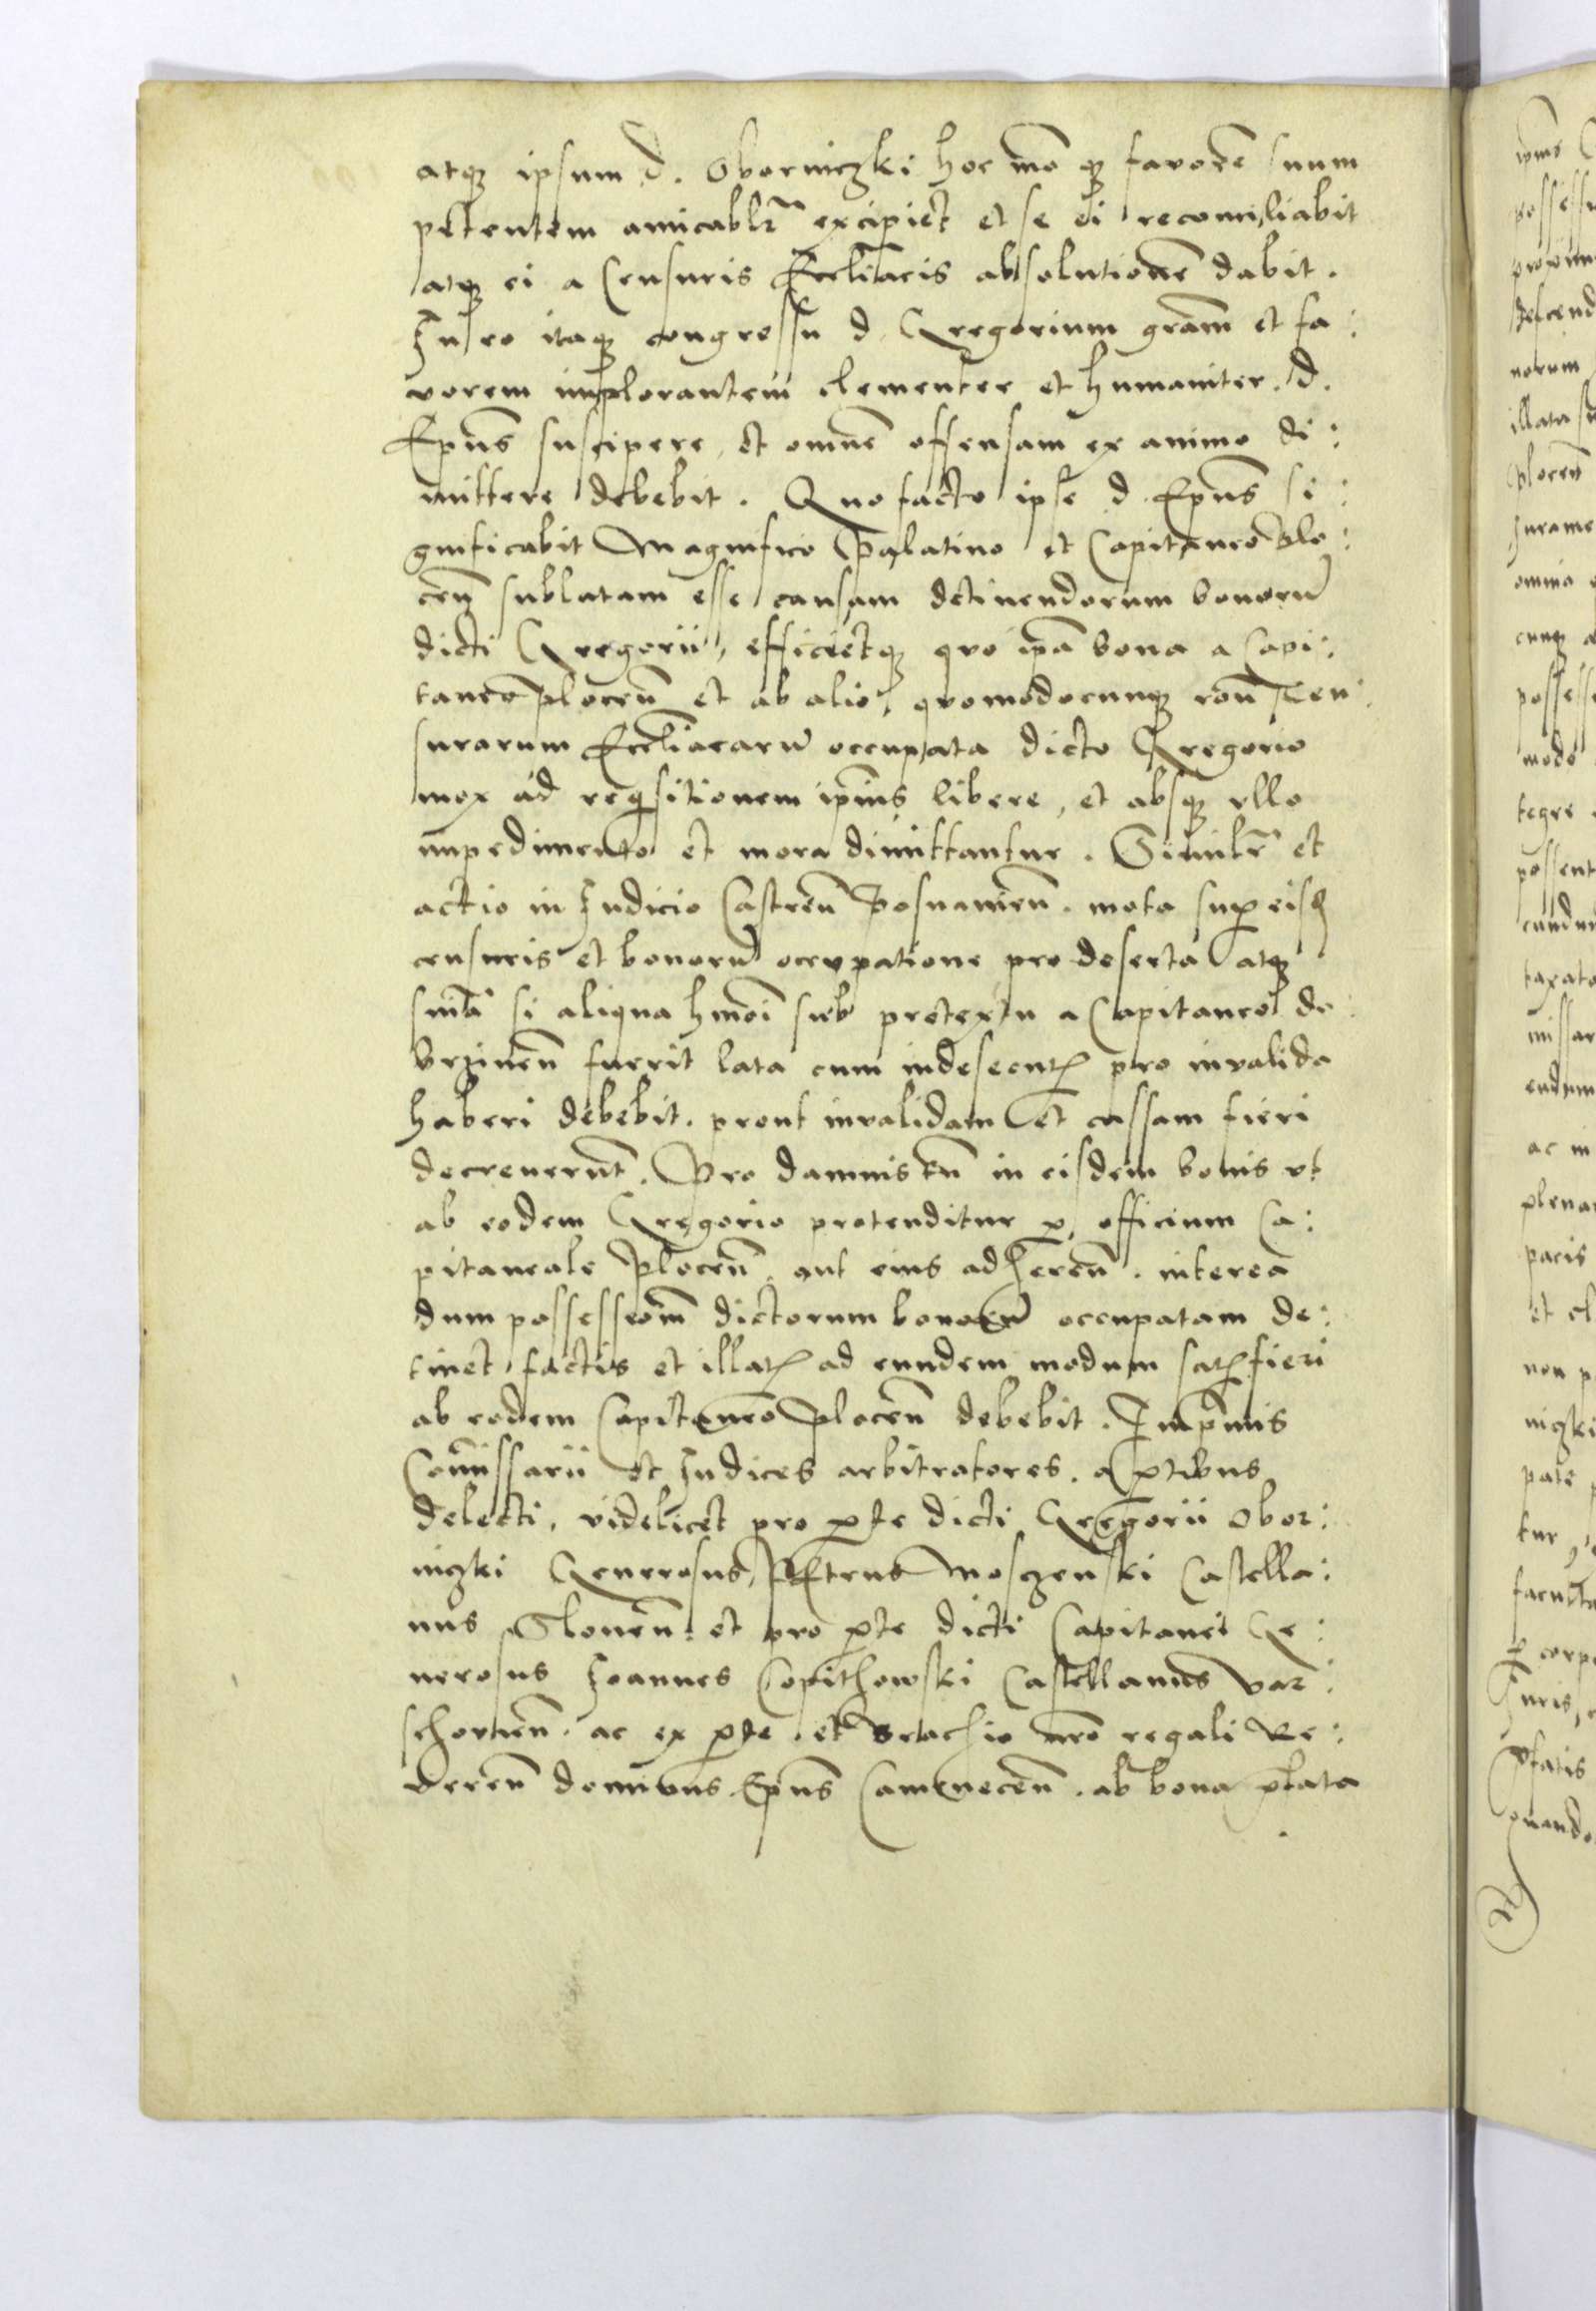 atq3 ipsum d. Oborniczki hoc mō q3 favorē suum
petentem amicablr excipiet et se ei reconciliabit
atq3 ei a Censuris Eccliacis absolutionē dabit.
In eo itaq3 congressu d. Gregorium gram̄ et fa:
vorem implorantem clementer et humaniter. d.
Ep̄us suscipere, et omnē offensam ex animo di:
mittere debebit. Quo facto ipse d. Ep̄us si:
gnificabit Magnifico Palatino et Capitaneo Plo:
ceñ sublatam esse causam detinendorum bonorū
dicti Gregorii, efficietq3 quo ip̄a bona a Capi:
taneo Ploceñ et ab alio, quomodocunq3 roñe Cen:
surarum Eccliacarū occupata dicto Gregorio
mox ad reqisitionem ip̄ius libere, et absq3 ullo
impedimento et mora dimittantur. Similr et
actio in Judicio Castreñ Posnanieñ. mota super eisd
censuris et bonorū occupatione pro deserta atq3
snīa si aliqua hmōi sub pretextu a Capitaneo do
brzineñ fuerit lata cum inde secutis pro invalida
haberi debebit. prout invalidam et cassam fieri
decreverūt. Pro damnis tñ in eisdem bonis ut
ab eodem Gregorio pretenditur p officium Ca:
pitaneale Ploceñ. aut eius adhereñ. interea
dum possessioñm dictorum bonorū occupatam de:
tinet factis et illatis ad eundem modum satisfieri
ab eodem Capitaneo Ploceñ debebit. Imprimis
Com̄issarii et Judices arbitratores. a ptibus
delecti, videlicet pro pte dicti Gregorii Obor:
niczki Generosus Petrus Mosczenski Castella:
nus Sloneñ. et pro pte dicti Capitanei Ge:
nerosus Joannes Copithowski Castellanus Var:
schovieñ. ac ex pte. et brachio nr̄o regali Re:
vereñ dominus Ep̄us Cameneceñ. ab bona p̄fata